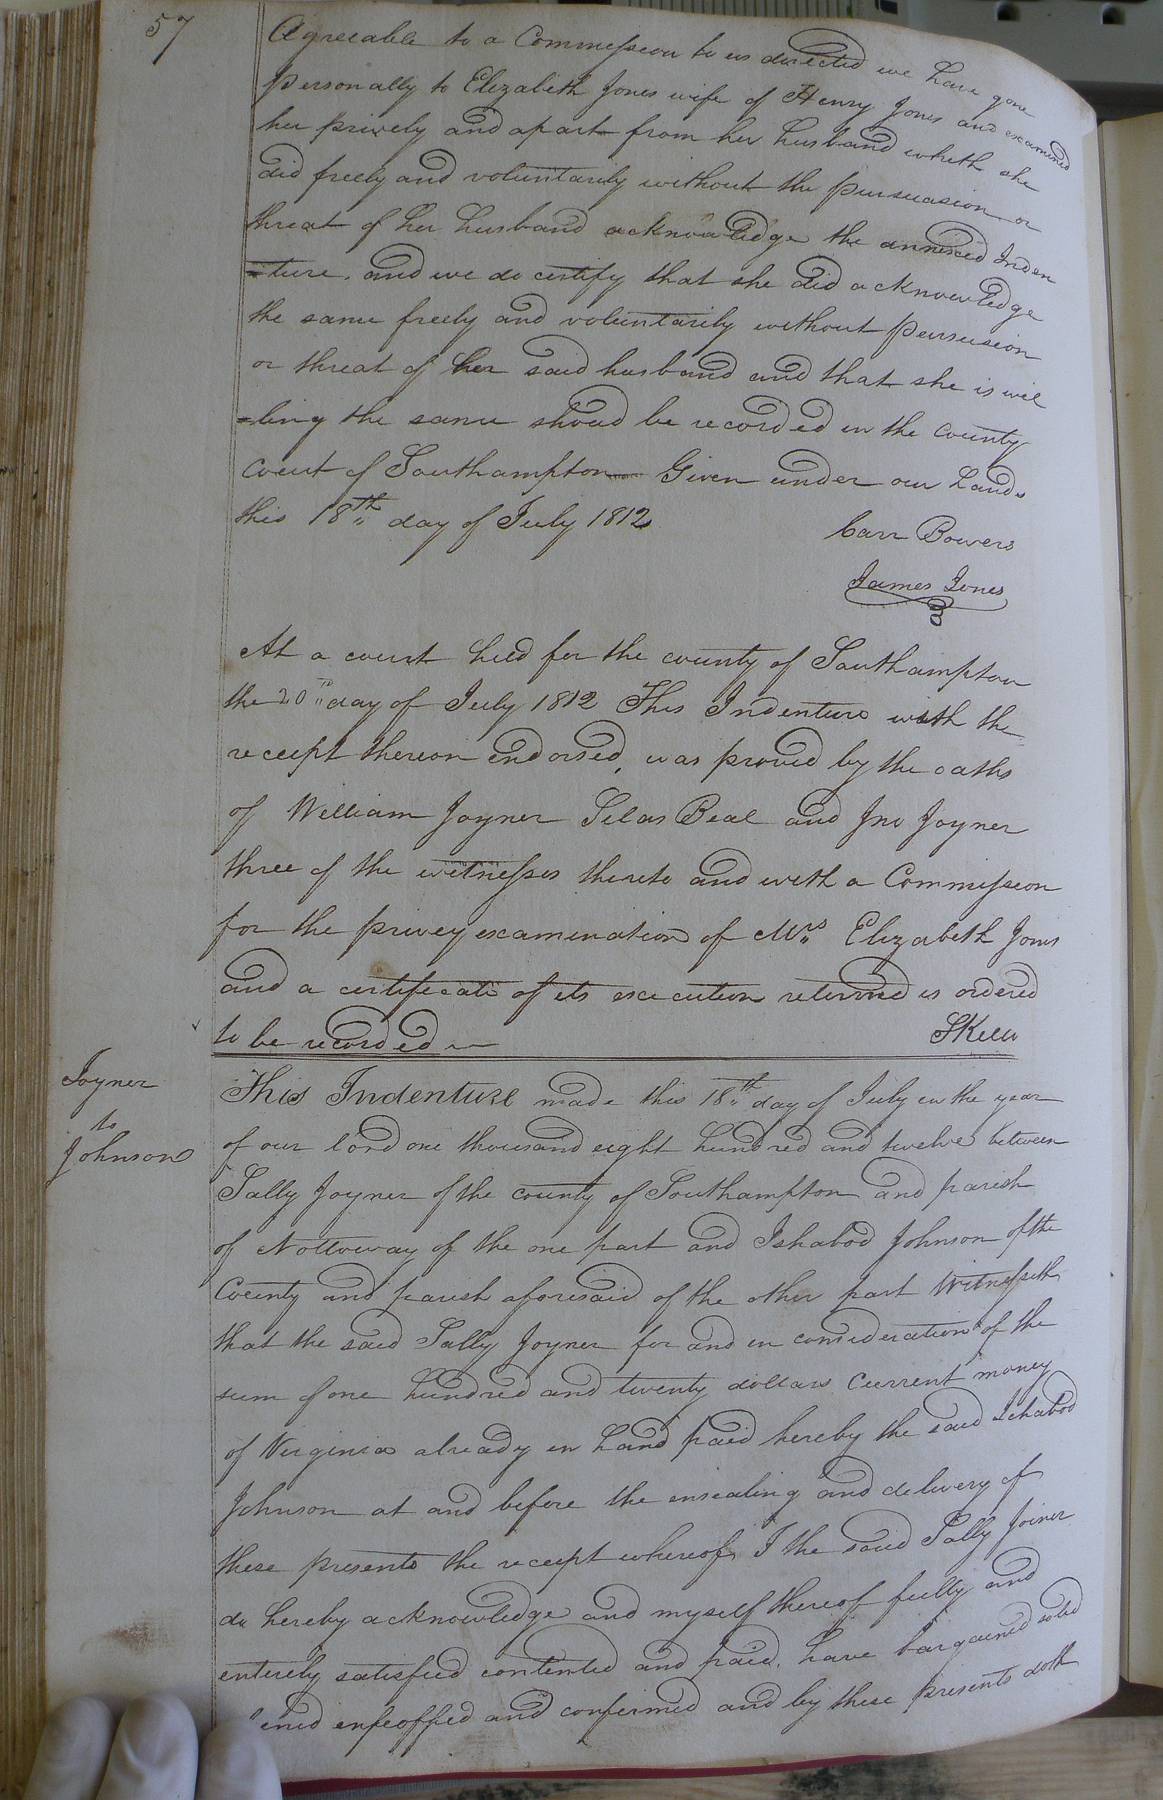 57
Agreeable to a Commission to us directed we have gone
personally to Elizabeth Jones wife of Henry Jones and examined
her prively and apart from her husband wheth she
did freely and voluntarily without the pursuasion or
threat of her husband acknowledge the annexed Inden
=ture. and we do certify that she did acknowledge
the same freely and voluntarily without persuseion
or threat of her said husband and that she is wil
=ling the same shoud be recorded in the county
court of Southampton Given under our hands
this 18th day of July 1812
Carr Bowers
James Jones
At a court held for the county of Southampton
the 20th day of July 1812 This Indenture with the
receipt thereon endorsed, was proved by the oaths
of William Joyner Silas Beal and Jno Joyner
three of the witnesses thereto and with a Commission
for the privey examination of Mrs Elizabeth Jones
and a certificate of its execution returned is ordered
to be recorded
Joyner
to
Johnson
This Indenture made this 18th day of July in the year
of our lord one thousand eight hundred and twelve between
Sally Joyner of the county of Southampton and parish
of Nottoway of the one part and Ishabod Johnson of the
County and parish aforesaid of the other part Witnesseth
that the said Sally Joyner for and in consideration of the
sum of one hundred and twenty dollars Current money
of Virginia already in hand paid hereby the said Ichabod
Johnson at and before the ensealing and delivery of
these presents the receipt whereof I the said Sally Joiner
do hereby acknowledge and myself thereof fully and
entirely satisfied contented and paid, have bargained sold
enfeoffed and confirmed and by these presents doth